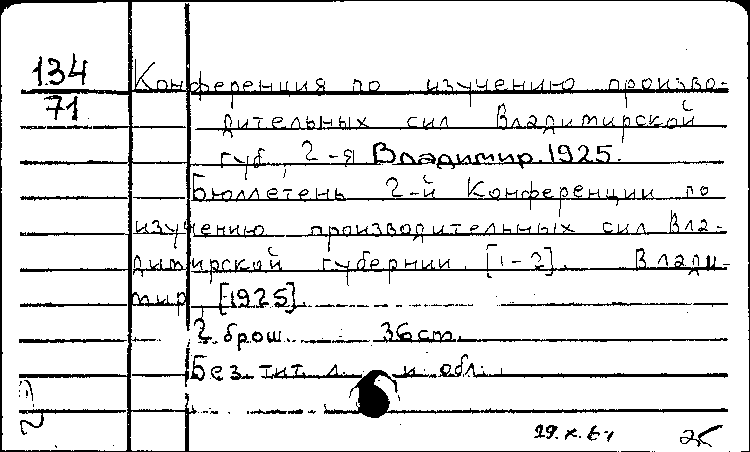 134
71
Конференция по изучению произво-
дительных сил Владимирской
губ., 2-я Владимир. 1925.
Бюллетень 2-й Конференции по
изучению производительных сил Вла-
димирской губернии. [1-2]. Влади-
мир, [1925].
2 брош. 36 cm.
Без тит. л. и обл.